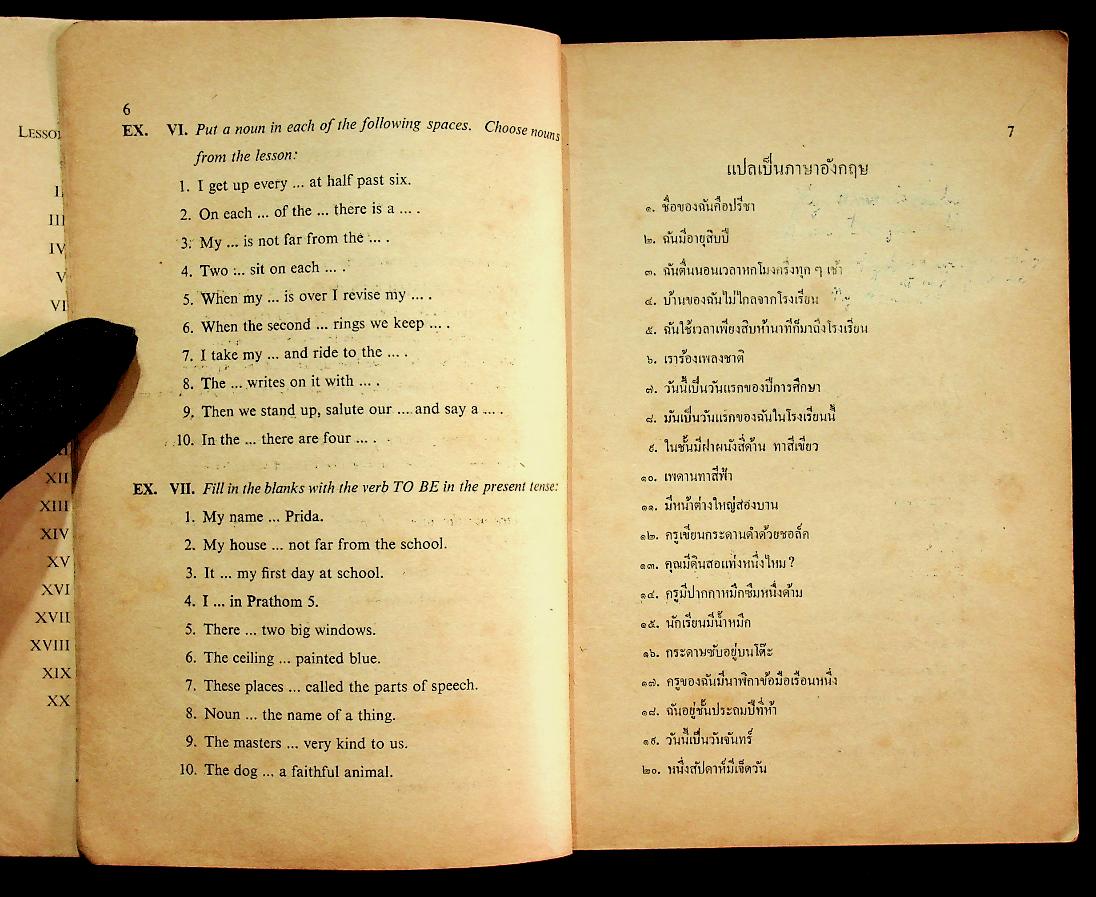 LESSON
II
III
IV
V
VI
XII
XIII
XIV
XV
XVI
XVII
XVIII
XIX
XX
6
EX. VI. Put a noun in each of the following spaces. Choose nouns
from the lesson:
1. I get up every ... at half past six.
2. On each ... of the ... there is a ... .
3. My ... is not far from the ... .
4. Two ... sit on each ... .
5. When my ... is over I revise my ... .
6. When the second ... rings we keep ... .
7. I take my ... and ride to the ... .
8. The ... writes on it with ... .
9. Then we stand up, salute our ... and say a ... .
10. In the ... there are four ... .
EX. VII. Fill in the blanks with the verb TO BE in the present tense:
1. My name ... Prida.
2. My house ... not far from the school.
3. It ... my first day at school.
4. I ... in Prathom 5.
5. There ... two big windows.
6. The ceiling ... painted blue.
7. These places ... called the parts of speech.
8. Noun ... the name of a thing.
9. The masters ... very kind to us.
10. The dog ... a faithful animal.
7
แปลเป็นภาษาอังกฤษ
๑. ชื่อของฉันคือปรีชา
๒. ฉันมีอายุสิบปี
๓. ฉันตื่นนอนเวลาหกโมงครึ่งทุก ๆ เช้า
๔. บ้านของฉันไม่ไกลจากโรงเรียน
๕. ฉันใช้เวลาเพียงสิบห้านาทีก็มาถึงโรงเรียน
๖. เราร้องเพลงชาติ
๗. วันนี้เป็นวันแรกของปีการศึกษา
๘. มันเป็นวันแรกของฉันในโรงเรียนนี้
๙. ในชั้นมีฝาผนังสี่ด้าน ทาสีเขียว
๑๐. เพดานทาสีฟ้า
๑๑. มีหน้าต่างใหญ่สองบาน
๑๒. ครูเขียนกระดานดำด้วยชอล์ค
๑๓. คุณมีดินสอแท่งหนึ่งไหม ?
๑๔. ครูมีปากกาหมึกซึมหนึ่งด้าม
๑๕. นักเรียนมีน้ำหมึก
๑๖. กระดาษซับอยู่บนโต๊ะ
๑๗. ครูของฉันมีนาฬิกาข้อมือเรือนหนึ่ง
๑๘. ฉันอยู่ชั้นประถมปีที่ห้า
๑๙. วันนี้เป็นวันจันทร์
๒๐. หนึ่งสัปดาห์มีเจ็ดวัน